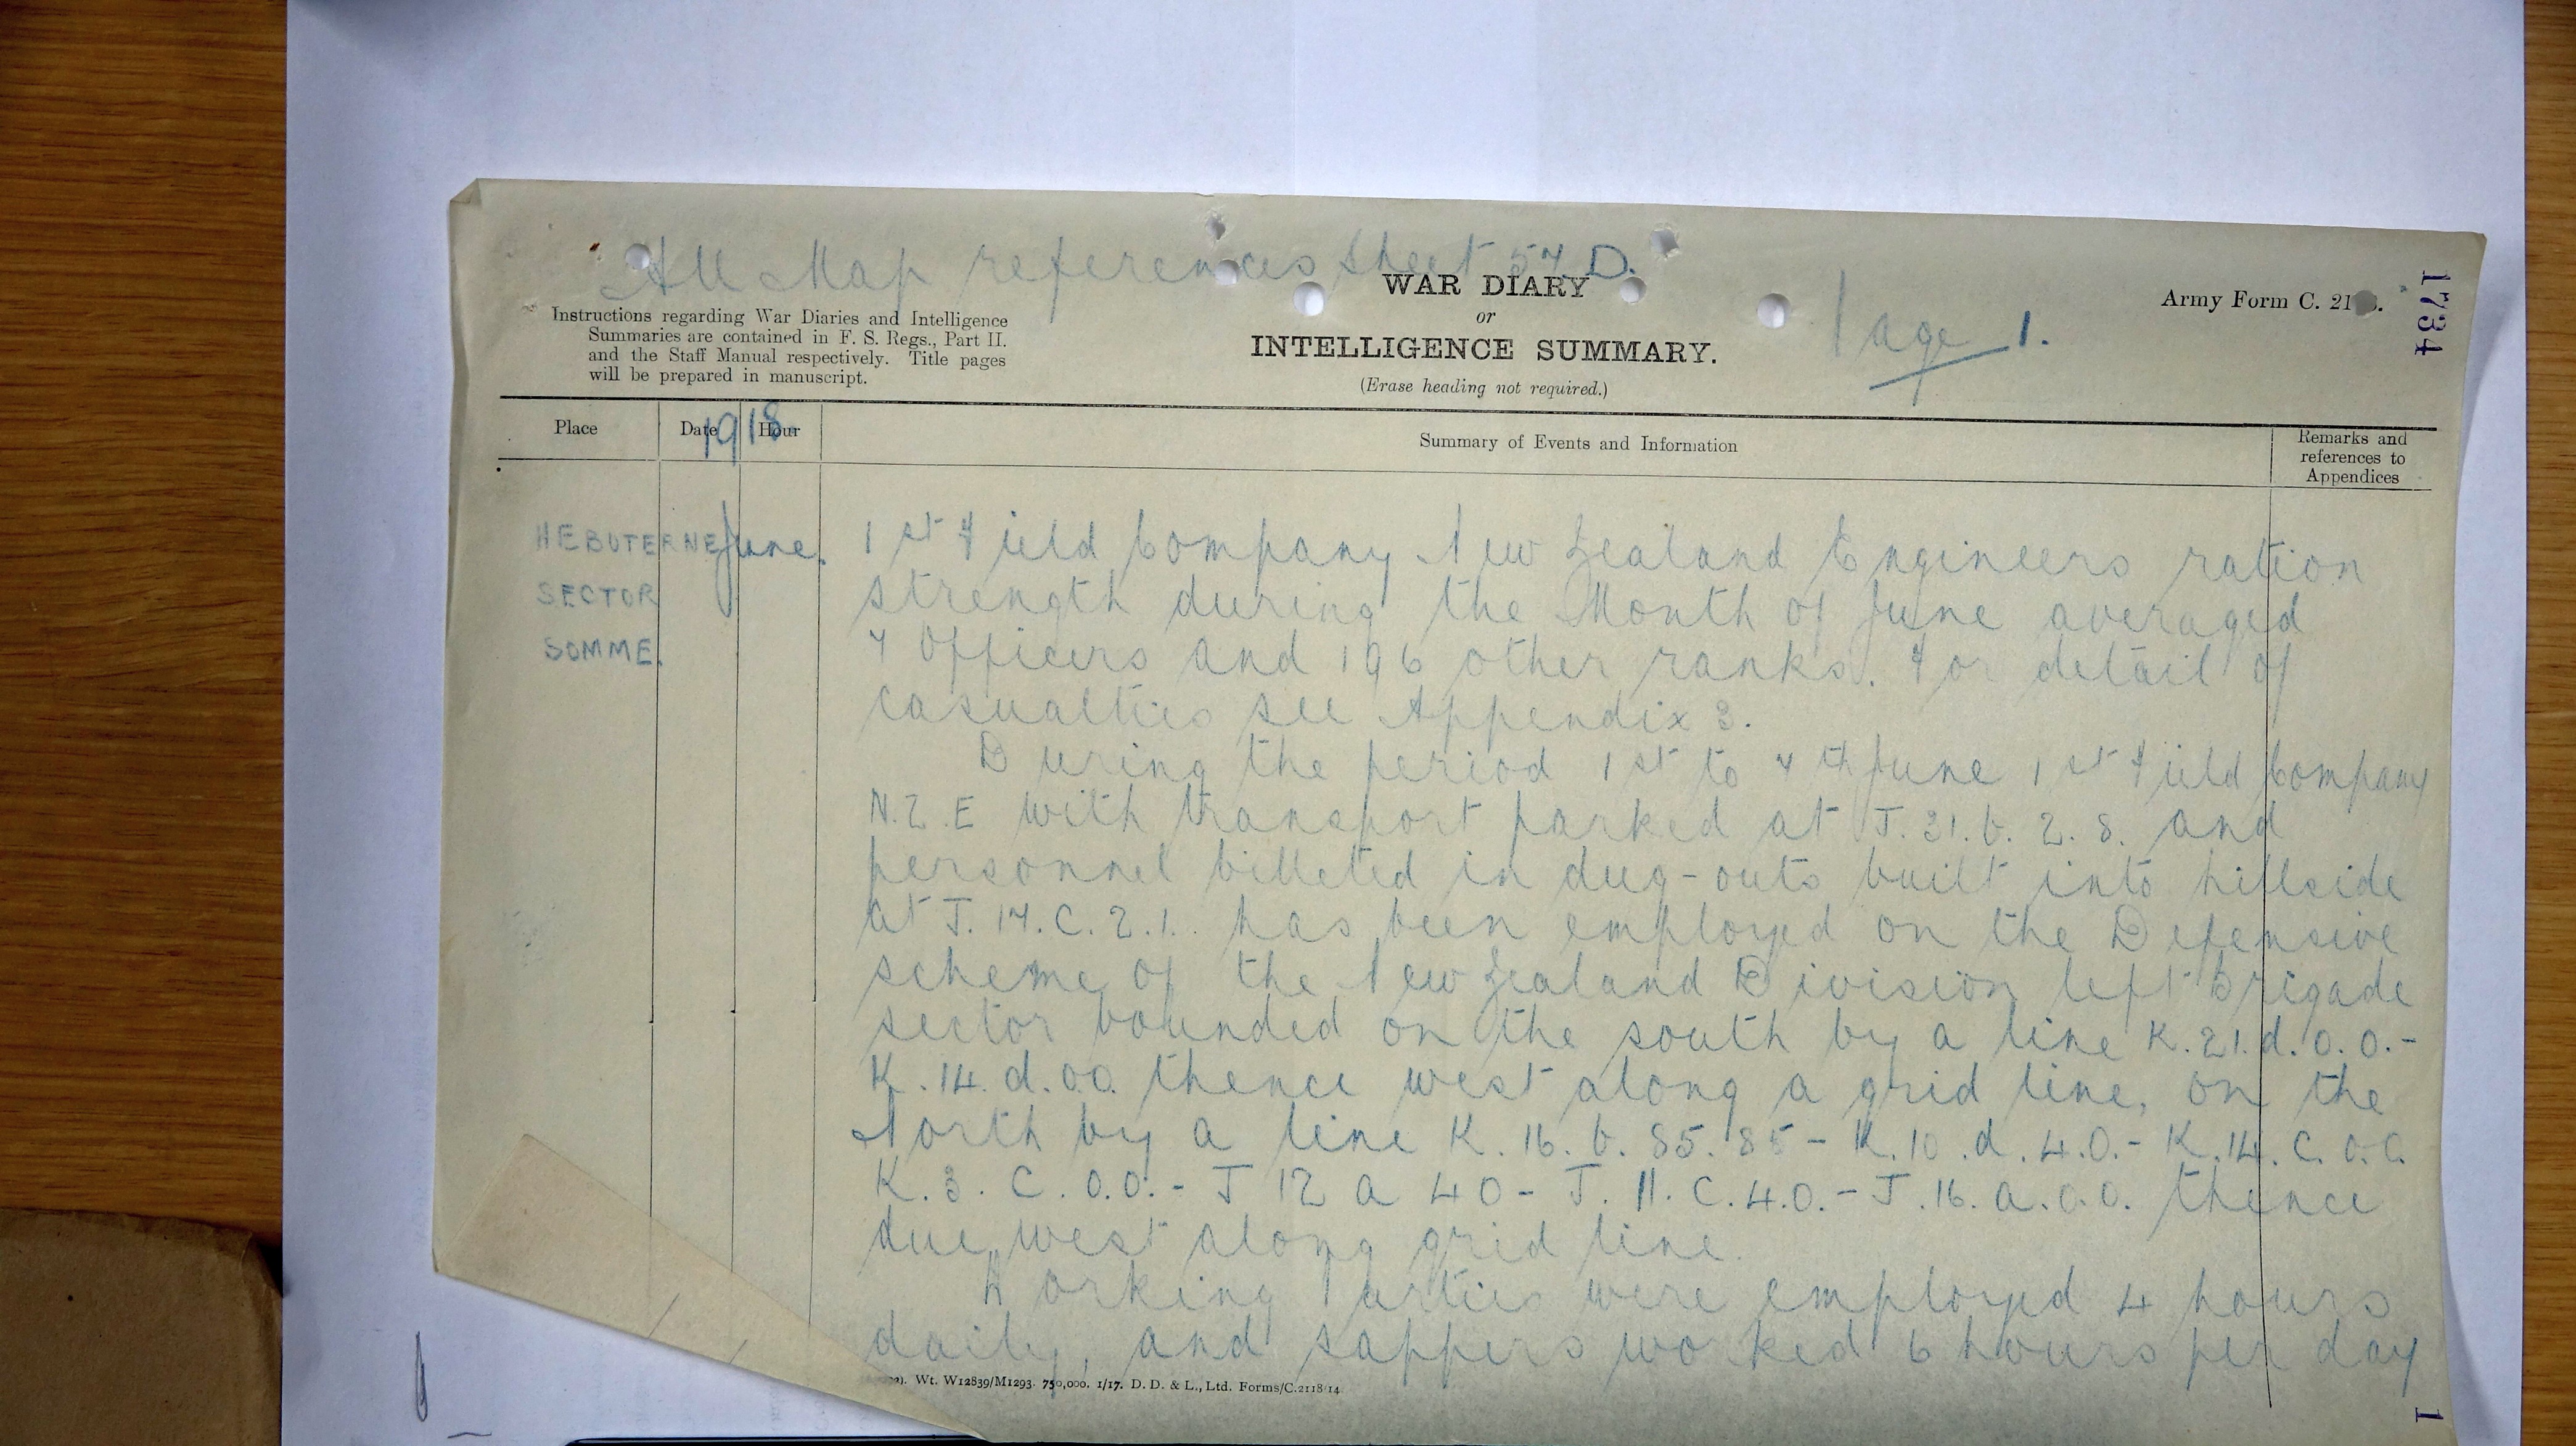 All Map references Sheet 57.D.
WAR DIARY
or
INTELLIGENCE SUMMARY.
(Erase heading not required.)
Instructions regarding War Diaries and Intelligence
Summaries are contained in F. S. Regs., Part II.
and the Staff Manual respectively. Title pages
will be prepared in manuscript.
Page 1.
Army Form C. 21
1734
Place
Date
Hour
1918.
Summary of Events and Information
Remarks and
references to
Appendices
HEBUTERNE
SECTOR
SOMME.
June.
1st Field Company New Zealand Engineers ration
strength during the Month of June averaged
7 Officers and 196 other ranks. For detail of
casualties see Appendix 3.
During the period 1st to 7th June 1st Field Company
N.Z.E with transport parked at J.31.b.2.8. and
personnel billeted in dug-outs built into hillside
at J.17.C.2.1.. has been employed on the Defensive
scheme of the New Zealand Division left Brigade
sector bounded on the south by a line K.21.d.0.0.-
K.14.d.0.0. thence west along a grid line, on the
North by a line K.16.b.85.85 - K.10.d.4.0.- K.14.C.0.0.
K.3.C.0.0.- J 12 a 40 - J.11.C.4.0.- J.16.a.0.0. thence
due west along grid line.
Working Parties were employed 4 hours
daily, and sappers worked 6 hours per day
Wt. W12839/M1293. 750,000. 1/17. D. D. & L., Ltd. Forms/C.2118/14
1